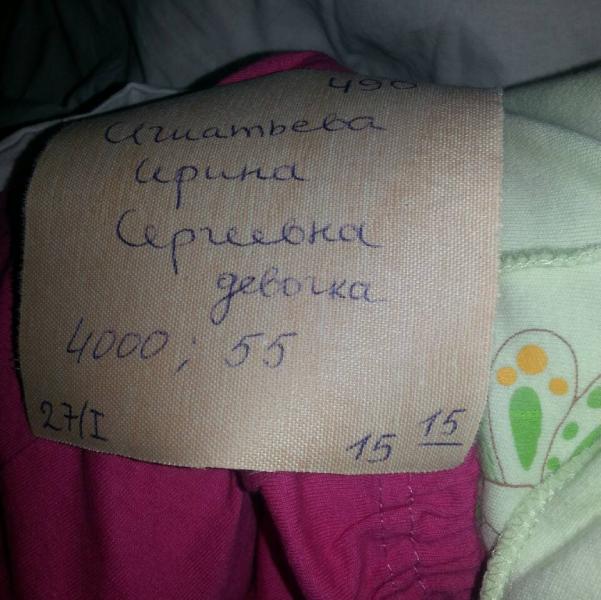 490
Игнатьева
Ирина
Сергеевна
девочка
4000; 55
27/I 15 15